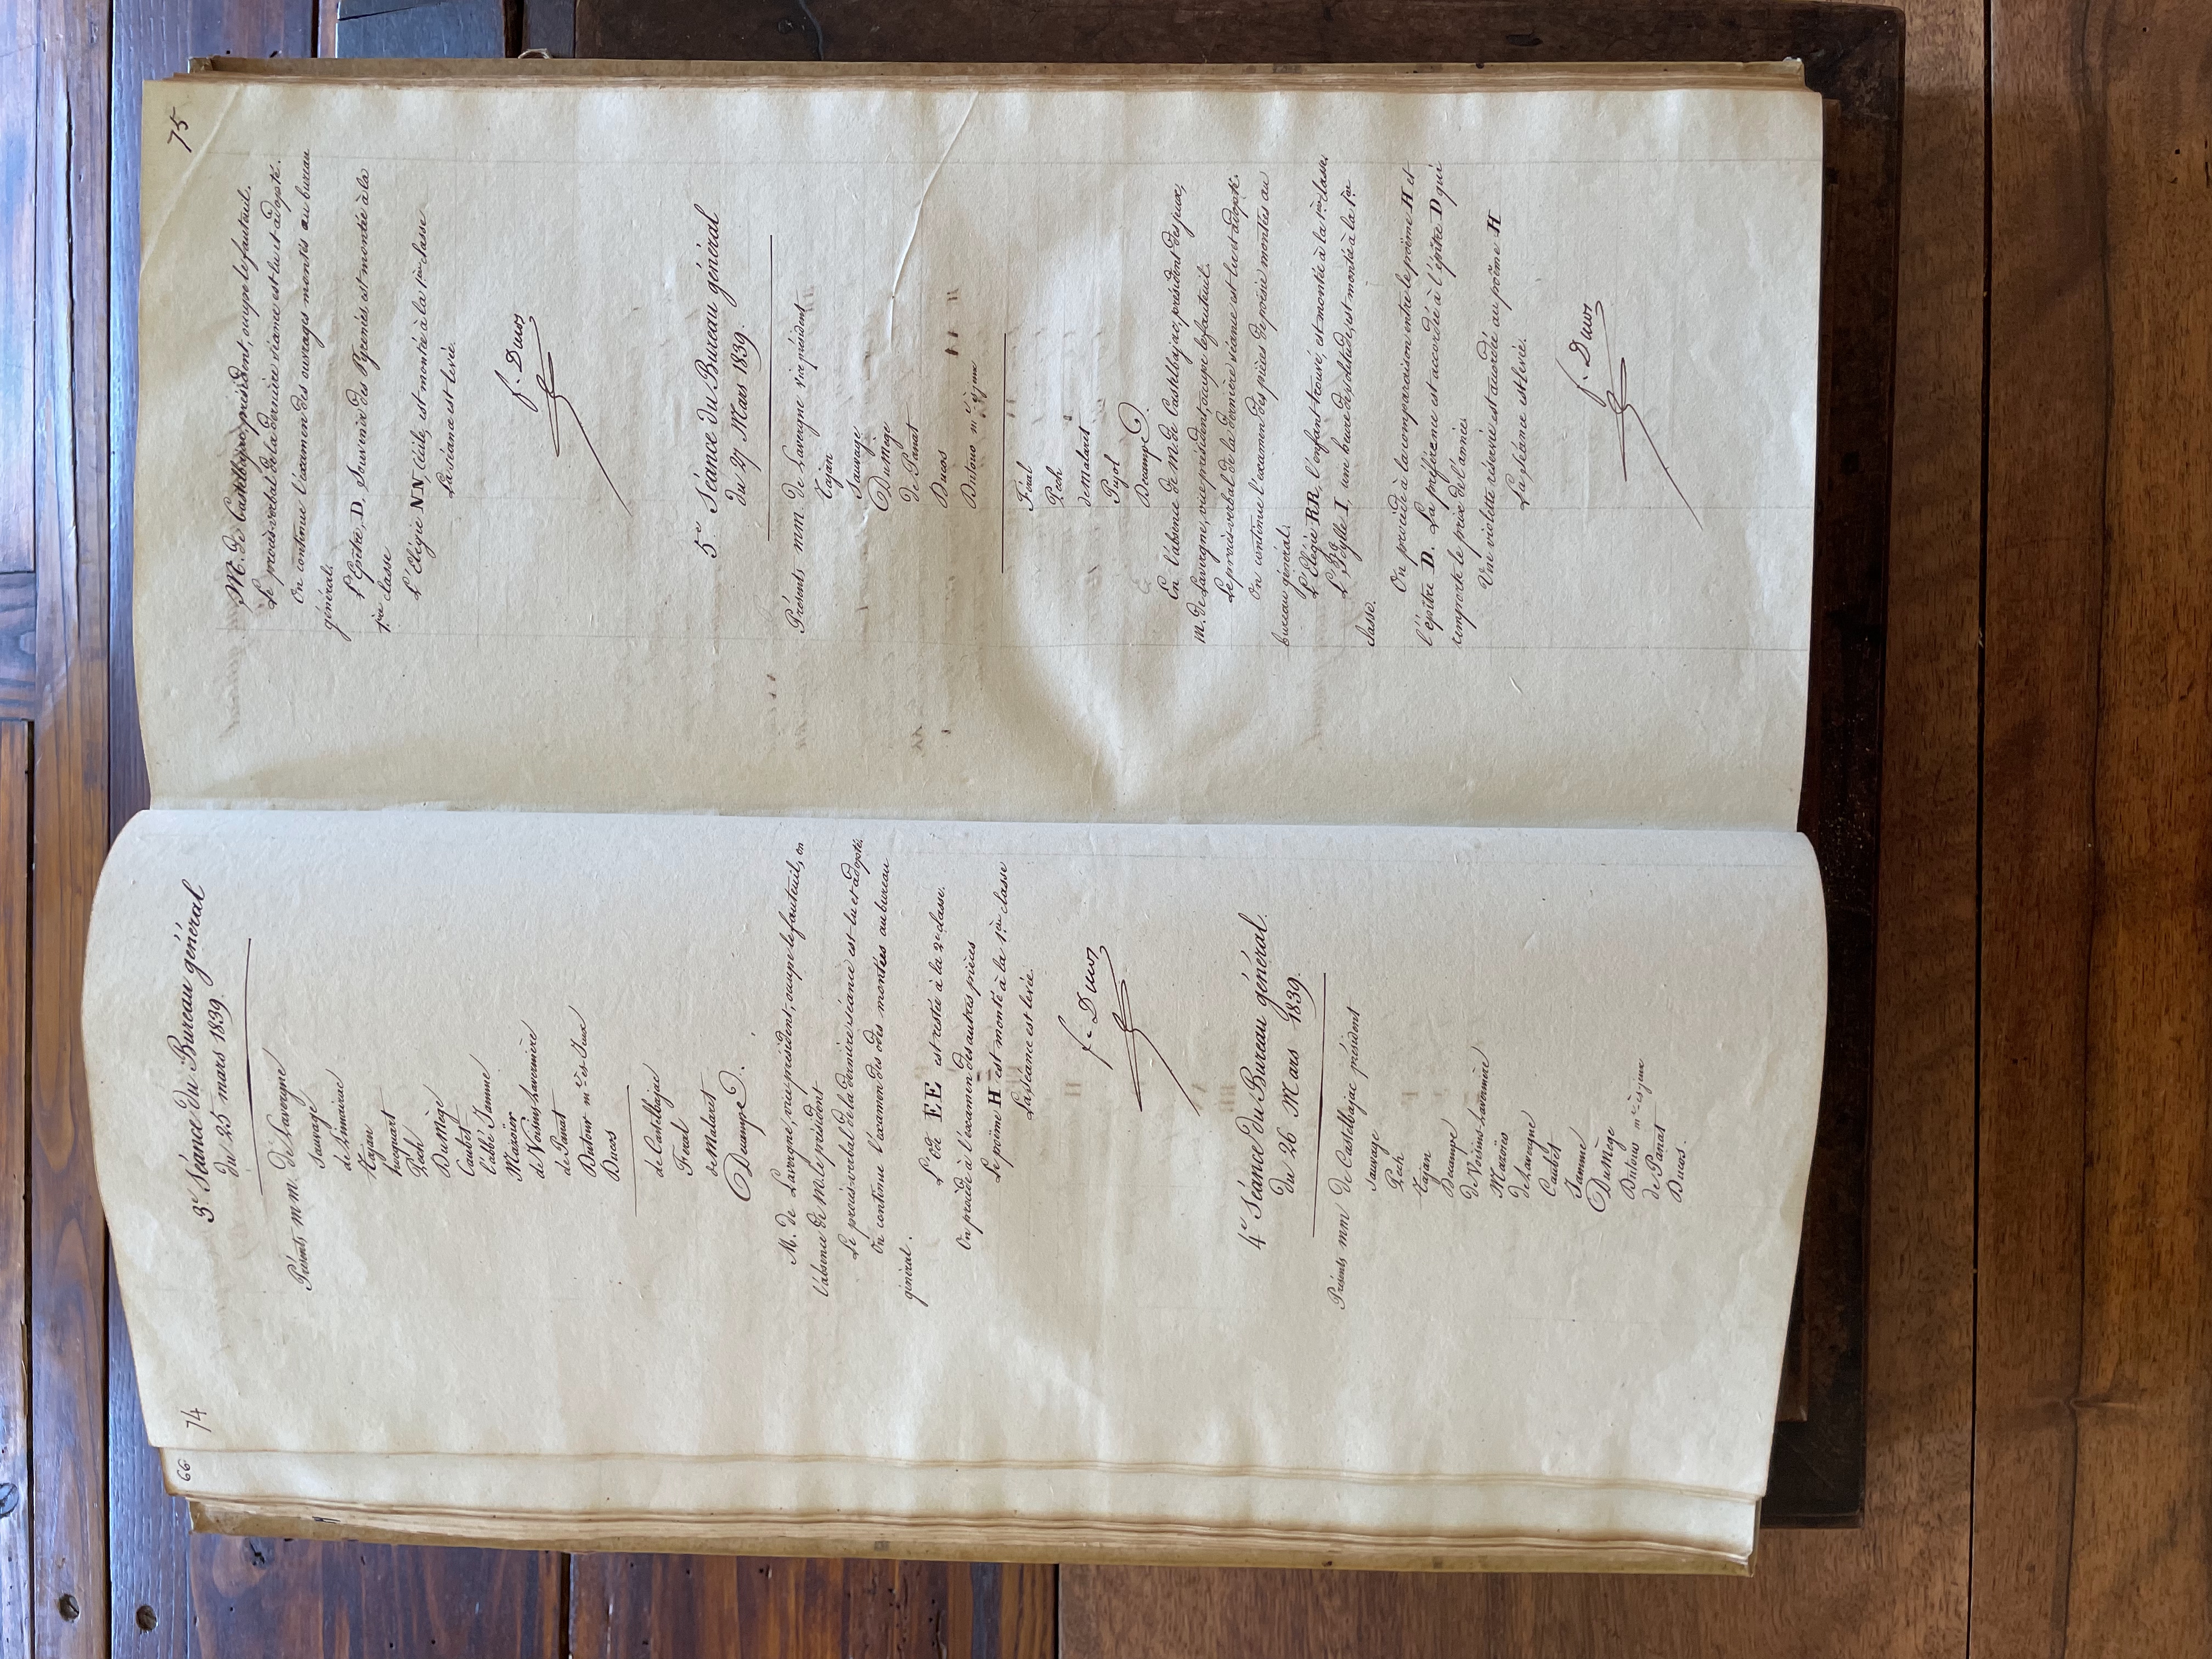 66
74
3.e Séance du Bureau général
du 25 mars 1839.
Présents mm. de Lavergne
Sauvage
de Limairac
Tajan
hocquart
Pech
DuMège
Caubet
l'abbé Jamme
Mazoïer
de Voisins-Lavernière
de Panat
Dutour m.e ès Jeux
Ducos
de Castelbajac
Féral
de Malaret
Decampe
M. de Lavergne, vice-président, occupe le fauteuil, en
l'absence de M. le président
Le procès-verbal de la dernière séance est lu et adopté.
On continue l'examen des odes montées au bureau
général.
L'ode EE est restée à la 2e classe.
On procède à l'examen des autres pièces
Le poëme H est monté à la 1ère classe
La séance est levée.
f. Ducos
4e Séance du Bureau général.
du 26 Mars 1839.
Présents mm de Castelbajac président
Sauvage
Pech
Tajan
Decampe
de Voisins-Lavernière
Mazoïes
de Lavergne
Caubet
Jamme
DuMège
Dutour m.e ès jeux
de Panat
Ducos.
75
M. de Castelbajac, président, occupe le fauteuil.
Le procès-verbal de la dernière séance est lu et adopté.
On continue l'examen des ouvrages montés au bureau
général.
L'Epître, D, Souvenir des Pyrénées, est montée à la
1ère classe
L'Elégie NN, Cécile, est montée à la 1ère classe
La séance est levée.
f. Ducos
5.e Séance du Bureau général
du 27 Mars 1839.
Présents mm. de Lavergne vice président
Tajan
Sauvage
DuMège
de Panat
Ducos
Dutour m.e ès jeux
Féral
Pech
de Malaret
Pujol
Decampe
En l'absence de M. de Castelbajac, président des jeux,
m. de Lavergne, vice-président, occupe le fauteuil.
Le procès-verbal de la dernière séance est lu et adopté.
On continue l'examen des pièces de poésie montées au
bureau général.
L'Elégie RR, l'enfant trouvé, est montée à la 1ère classe,
L'Idylle I, une heure de solitude, est montée à la 1ère
classe.
On procède à la comparaison entre le poëme H et
l'épître D. La préférence est accordée à l'épître D qui
remporte le prix de l'année.
Une violette réservée est accordée au poême H
La séance est levée.
f. Ducos